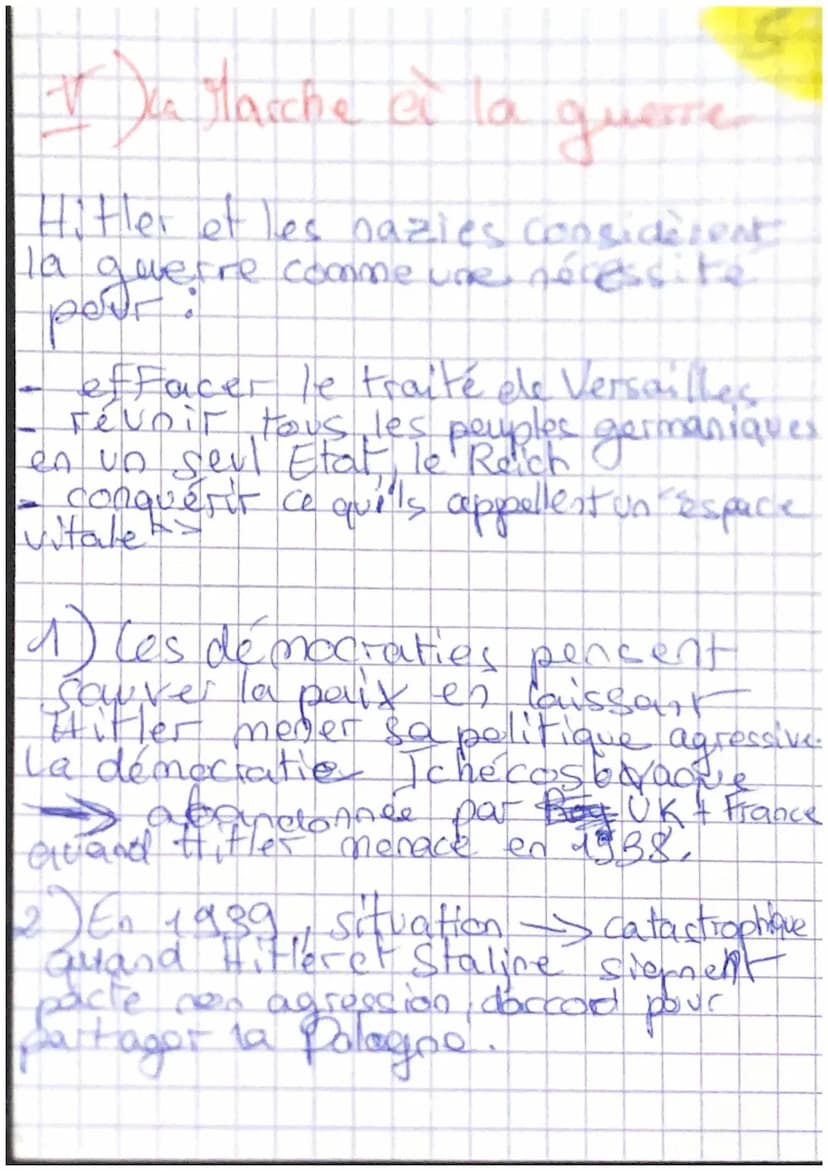 5
V) La Marche à la guerre
Hitler et les nazies considèrent
la guerre comme une nécessité
pour :
- effacer le traité de Versailles
- réunir tous les peuples germaniques
en un seul Etat, le Reich
- conquérir ce qu'ils appellent un "espace
vitale >>
1) Les démocraties pensent
sauver la paix en laissant
Hitler mener sa politique agressive.
La démocratie Tchécoslovaque
→ abandonnée par UK + France
quand Hitler menace en 1938.
2) En 1939, situation → catastrophique
quand Hitler et Staline signent
pacte non agression, daccord pour
partager la Pologne.